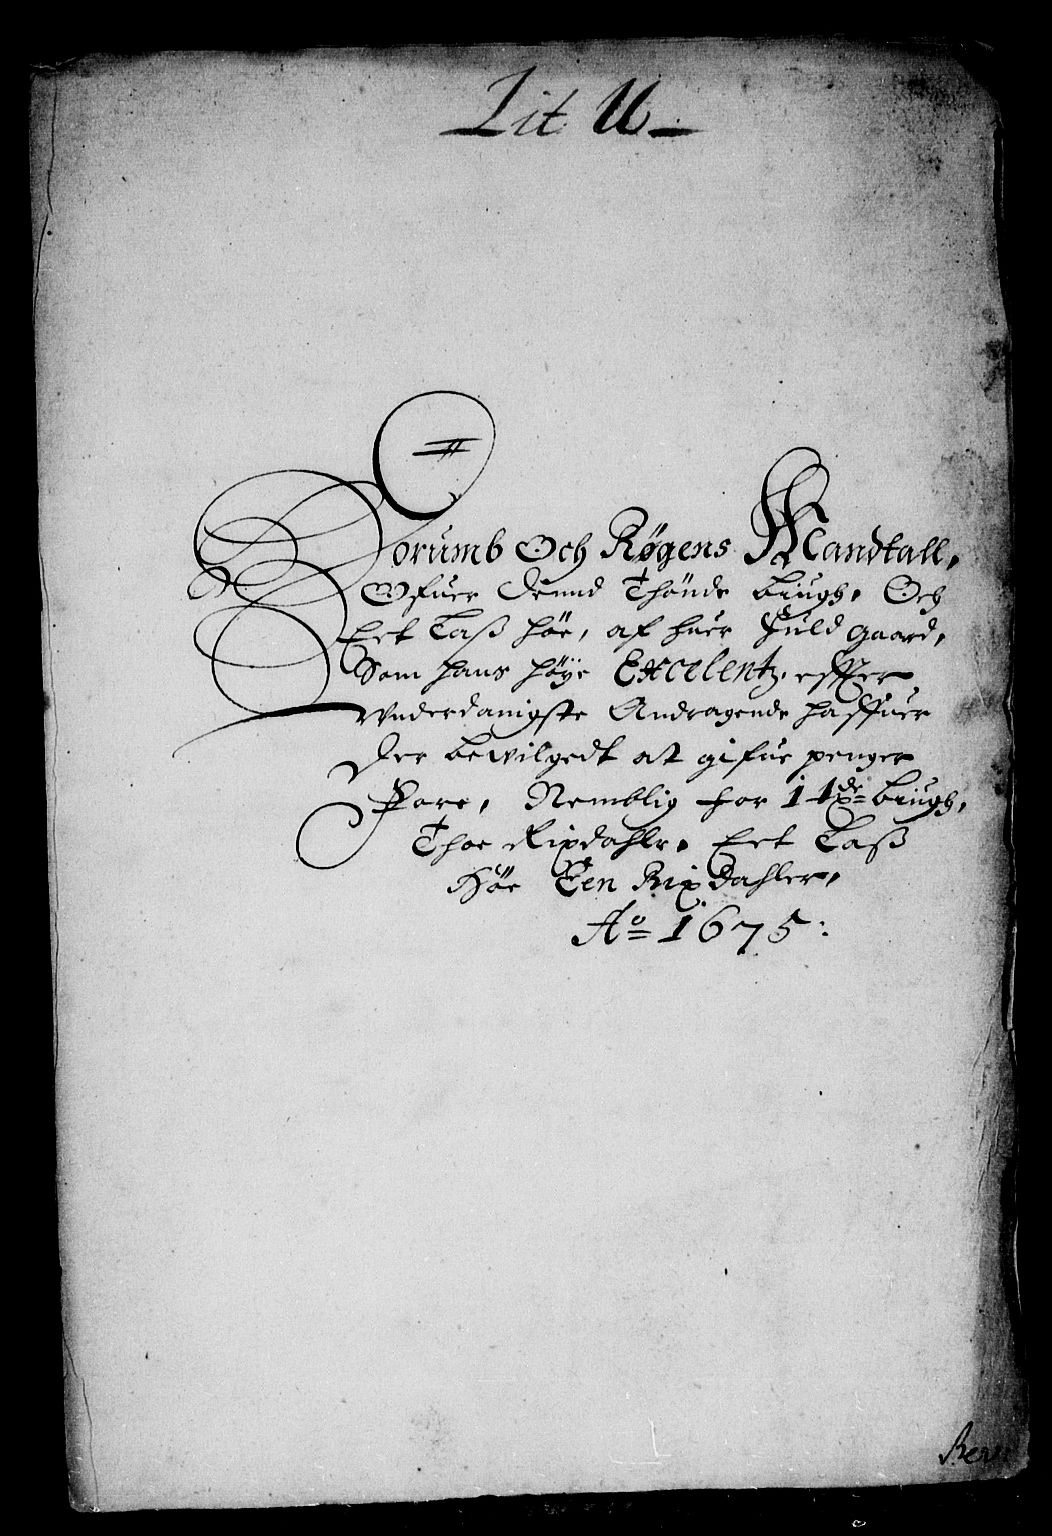 Lit U
Borumb Och Røgens Mandtall,
Ofuer Dennd Thønde biugh, Och
Eet Laß høe, af huer fuld gaard,
Som hans høye Excelentz, effter
Vnderdanigste Andragende haffuer
der bewilgedt at gifue penger
Fore, Nemblig for 1 tde biugh,
Thoe Rixdahlr, Eet Laß
Høe Een Rixdahler,
Ao 1675: